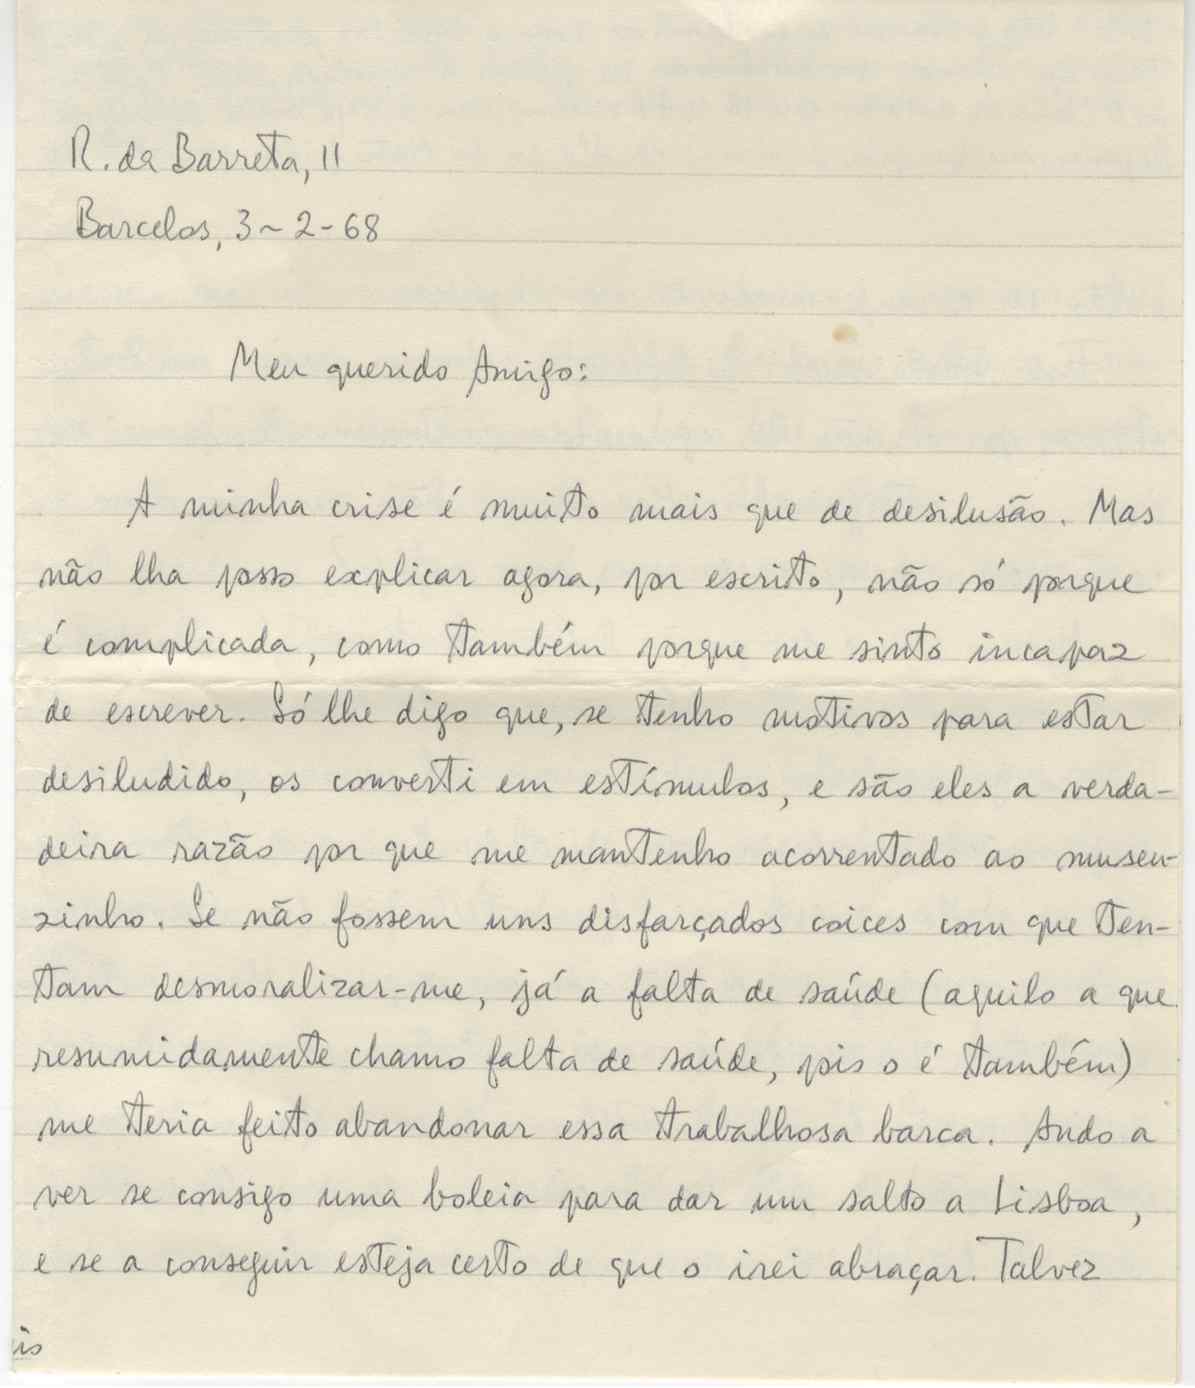 R. da Barreta, 11
Barcelos, 3-2-68
Meu querido Amigo:
A minha crise é muito mais que de desilusão. Mas
não lha posso explicar agora, por escrito, não só porque
é complicada, como também porque me sinto incapaz
de escrever. Só lhe digo que, se tenho motivos para estar
desiludido, os converti em estímulos, e são eles a verda-
deira razão por que me mantenho acorrentado ao museu-
zinho. Se não fossem uns disfarçados coices com que ten-
tam desmoralizar-me, já a falta de saúde (aquilo a que
resumidamente chamo falta de saúde, pois o é também)
me teria feito abandonar essa trabalhosa barca. Ando a
ver se consigo uma boleia para dar um salto a Lisboa,
e se a conseguir esteja certo de que o irei abraçar. Talvez